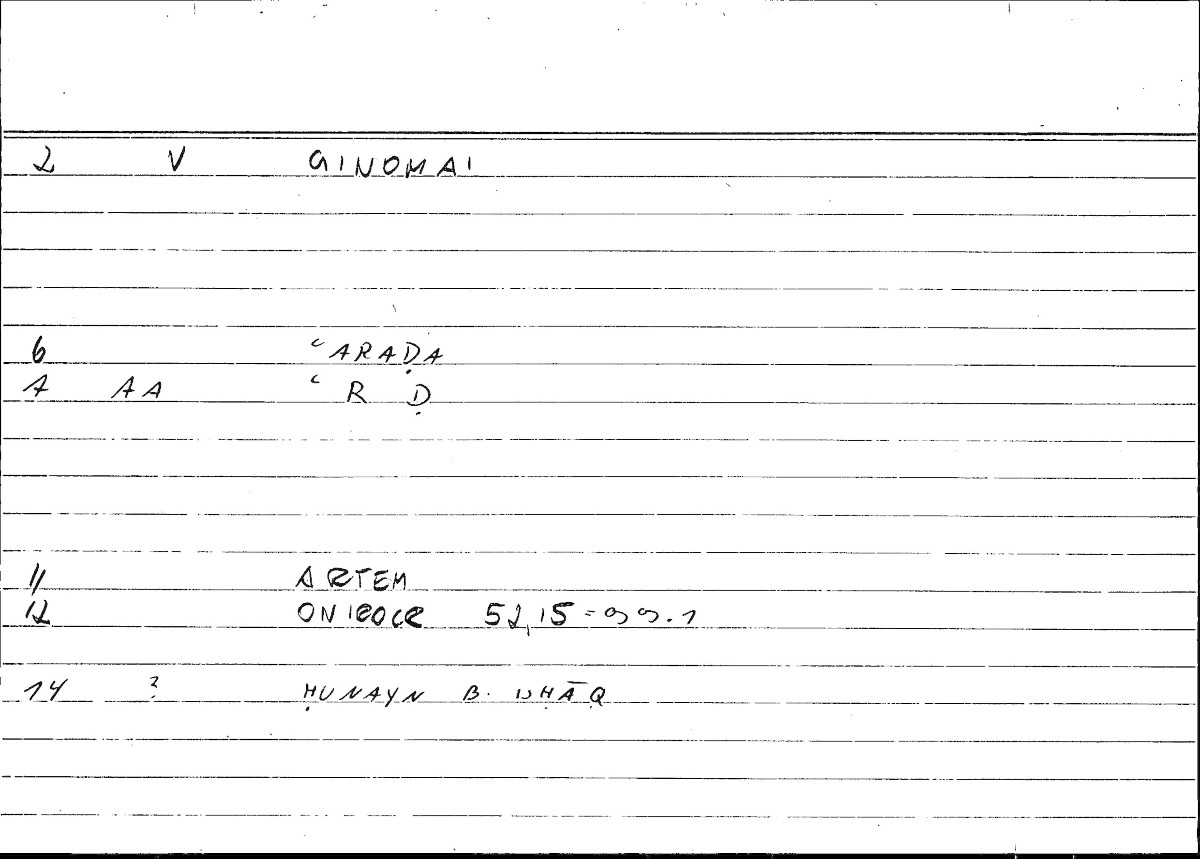 2 V GINOMAI
6 ʿARAḌA
7 AA ʿ R Ḍ
11 ARTEM
12 ONIROCR 52,15 = 99.1
14 ? ḤUNAYN B. ISḤĀQ